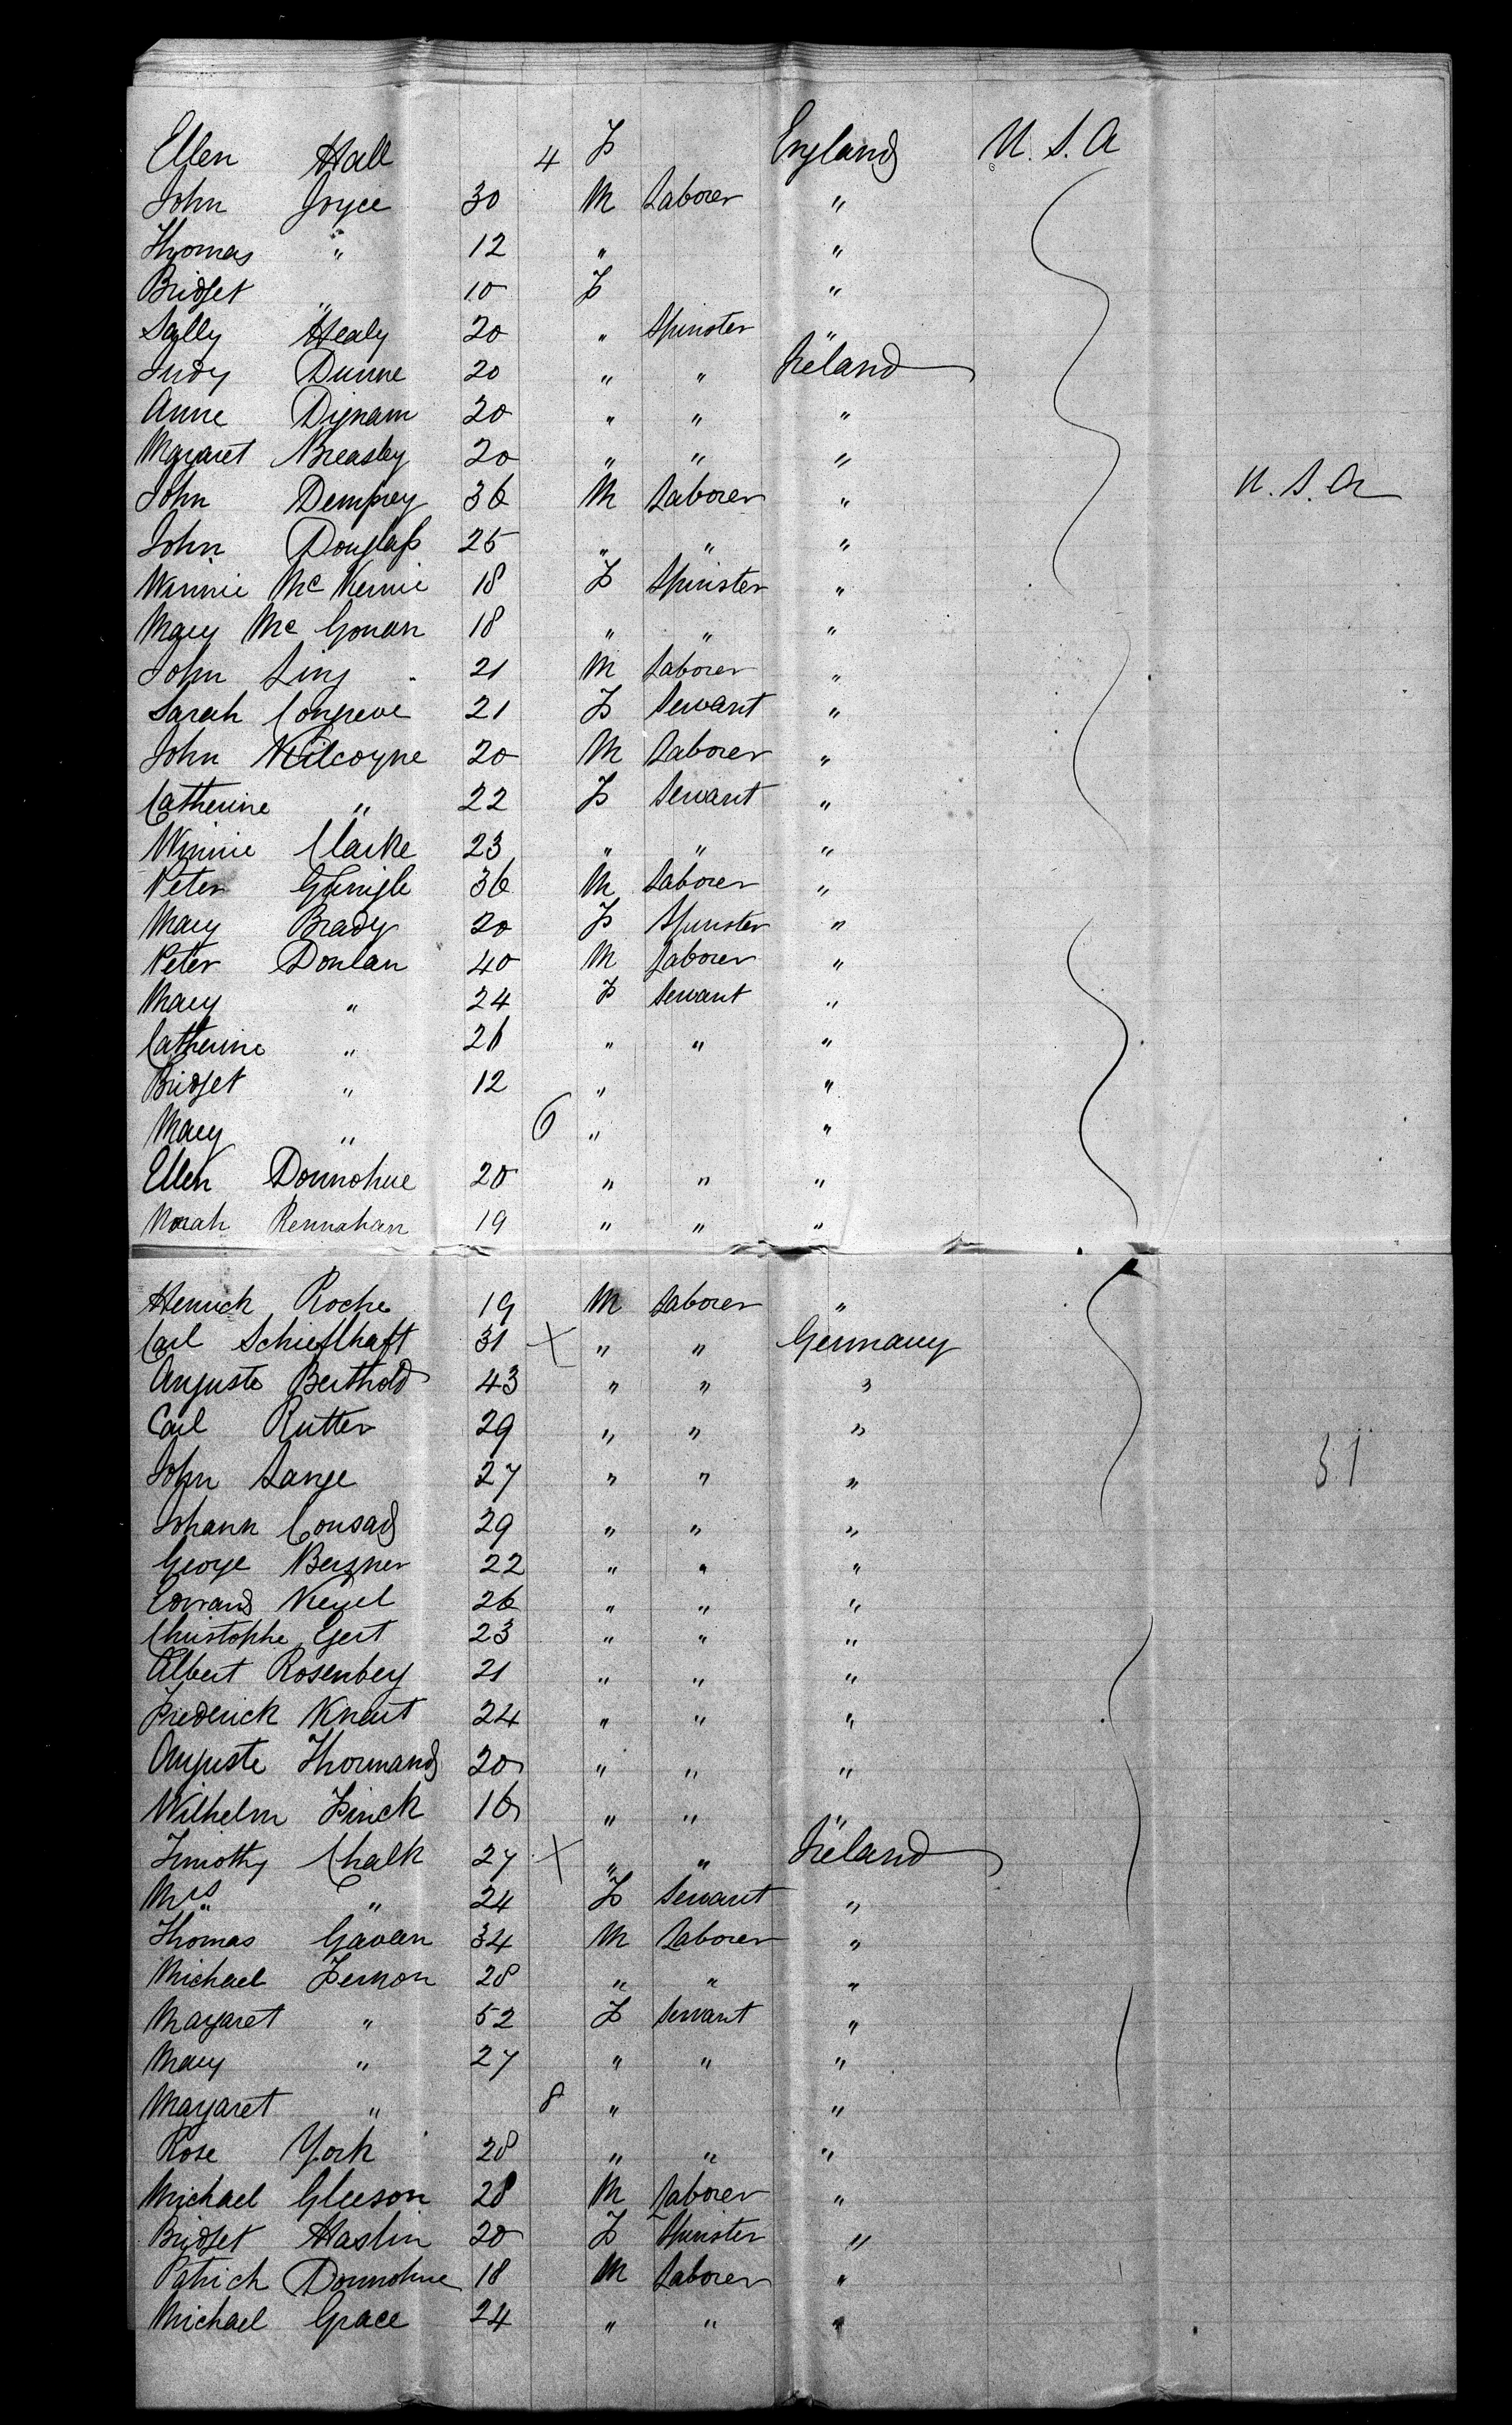 Ellen Hall 4 F England U.S.A
John Joyce 30 M Laborer "
Thomas " 12 " "
Bridget " 10 F "
Sally Healy 20 " Spinster "
Judy Dunne 20 " " Ireland
Anne Dignam 20 " " "
Margaret Breasley 20 " " "
John Dempsey 36 M Laborer " U.S.A
John Douglass 25 " " "
Winnie Mc Kernie 18 F Spinster "
Mary Mc Gowan 18 " " "
John Ling 21 M Laborer "
Sarah Congreve 21 F Servant "
John Kilcoyne 20 M Laborer "
Catherine " 22 F Servant "
Winnie Clarke 23 " " "
Peter 36 M Laborer "
Mary Brady 20 F Spinster "
Peter Donlan 40 M Laborer "
Mary " 24 F Servant "
Catherine " 26 " " "
Bridget " 12 " "
Mary " 6 " "
Ellen Donnohue 20 " " "
Norah Rennahan 19 " " "
Henrick Roche 19 M Laborer "
Carl Schieflhaft 31 X " " Germany
Auguste Berthold 43 " " "
Carl Rutter 29 " " "
John Lange 27 " " "
Johann Consad 29 " " "
George Bergner 22 " " " 51
Edward Kegel 26 " " "
Christophe Gert 23 " " "
Albert Rosenberg 21 " " "
Frederick Knaut 24 " " "
Auguste Thormand 20 " " "
Wilhelm Finck 16 " " "
Timothy Chalk 27 X " " Ireland
Mrs " 24 F Servant "
Thomas Gavan 34 M Laborer "
Michael Fernon 28 " " "
Margaret " 52 F Servant "
Mary " 27 " " "
Margaret " 8 " "
Rose York 28 " " "
Michael Gleeson 28 M Laborer "
Bridget Haslin 20 F Spinster "
Patrick Donnohue 18 M Laborer "
Michael Grace 24 " " "